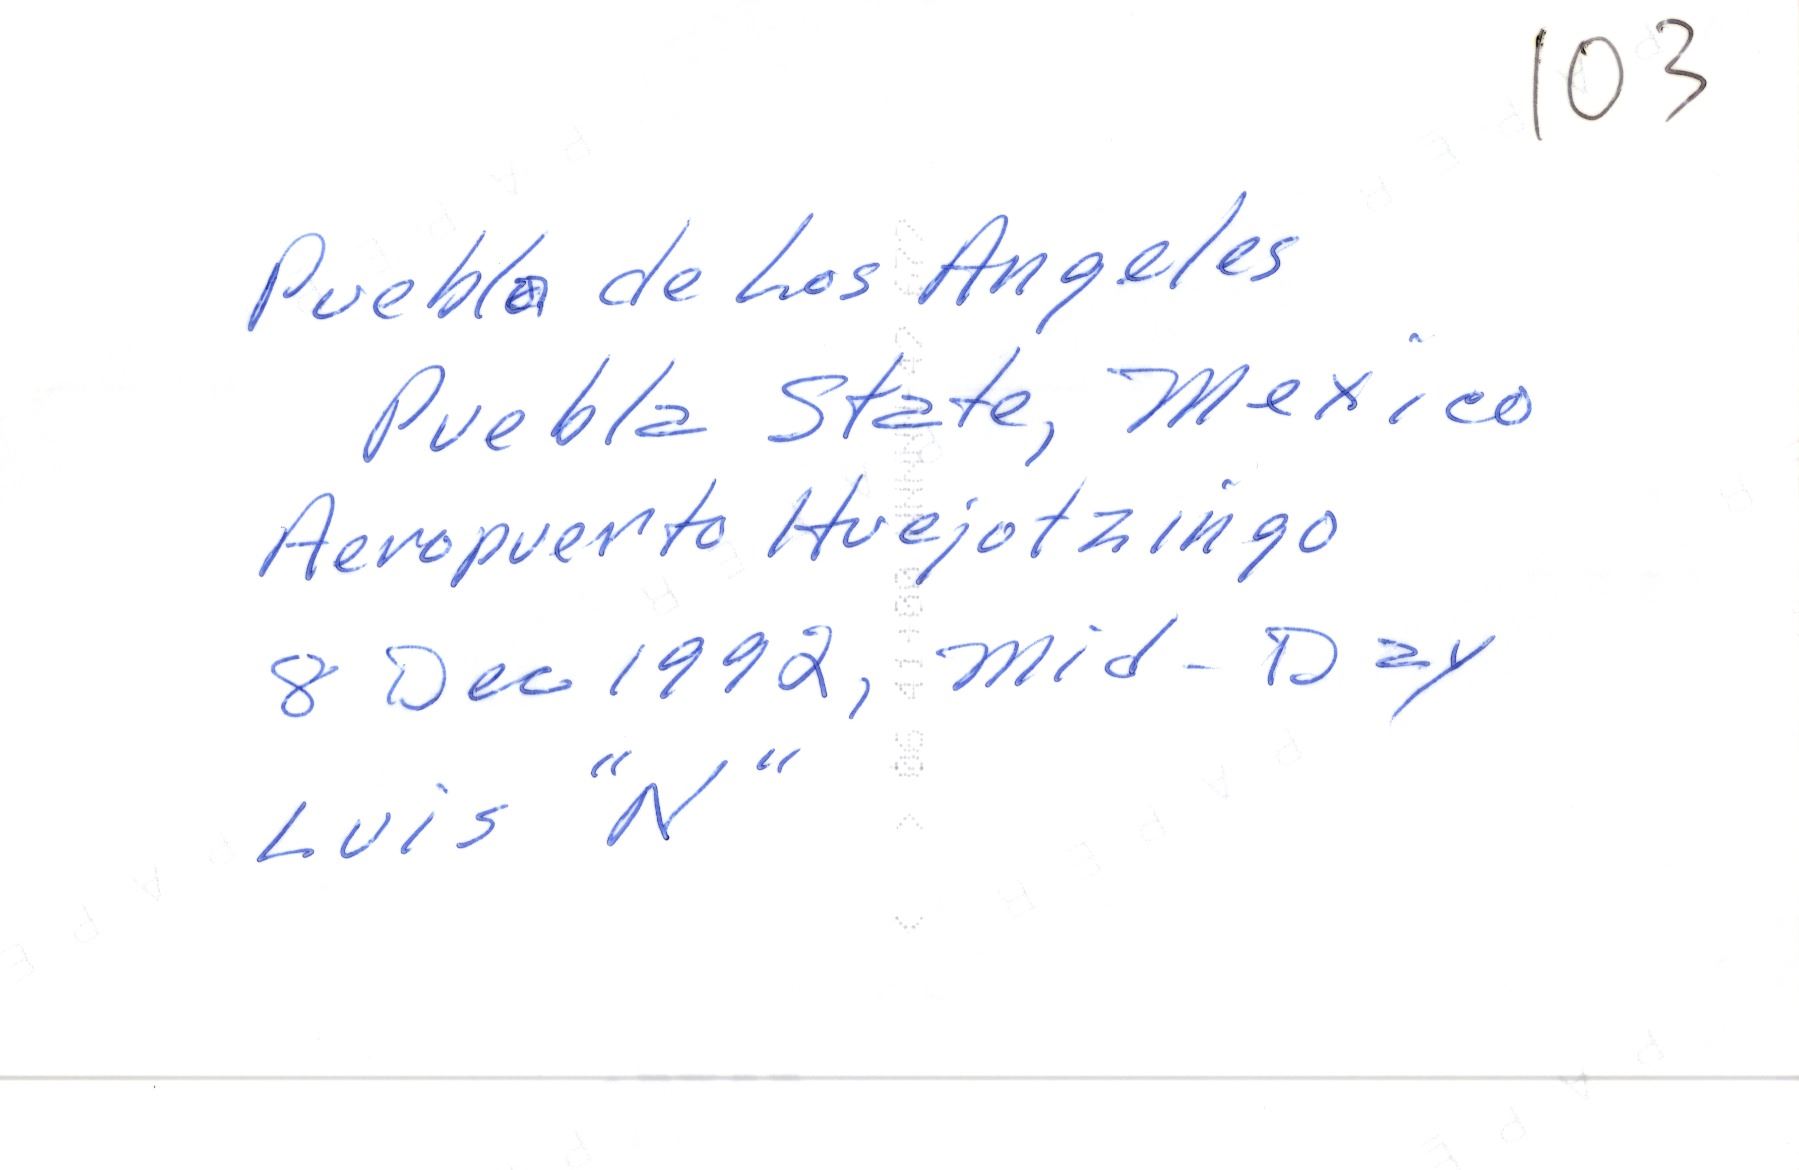 103
Puebla de Los Angeles
Puebla State, Mexico
Aeropuerto Huejotzingo
8 Dec 1992, Mid-Day
Luis "N"